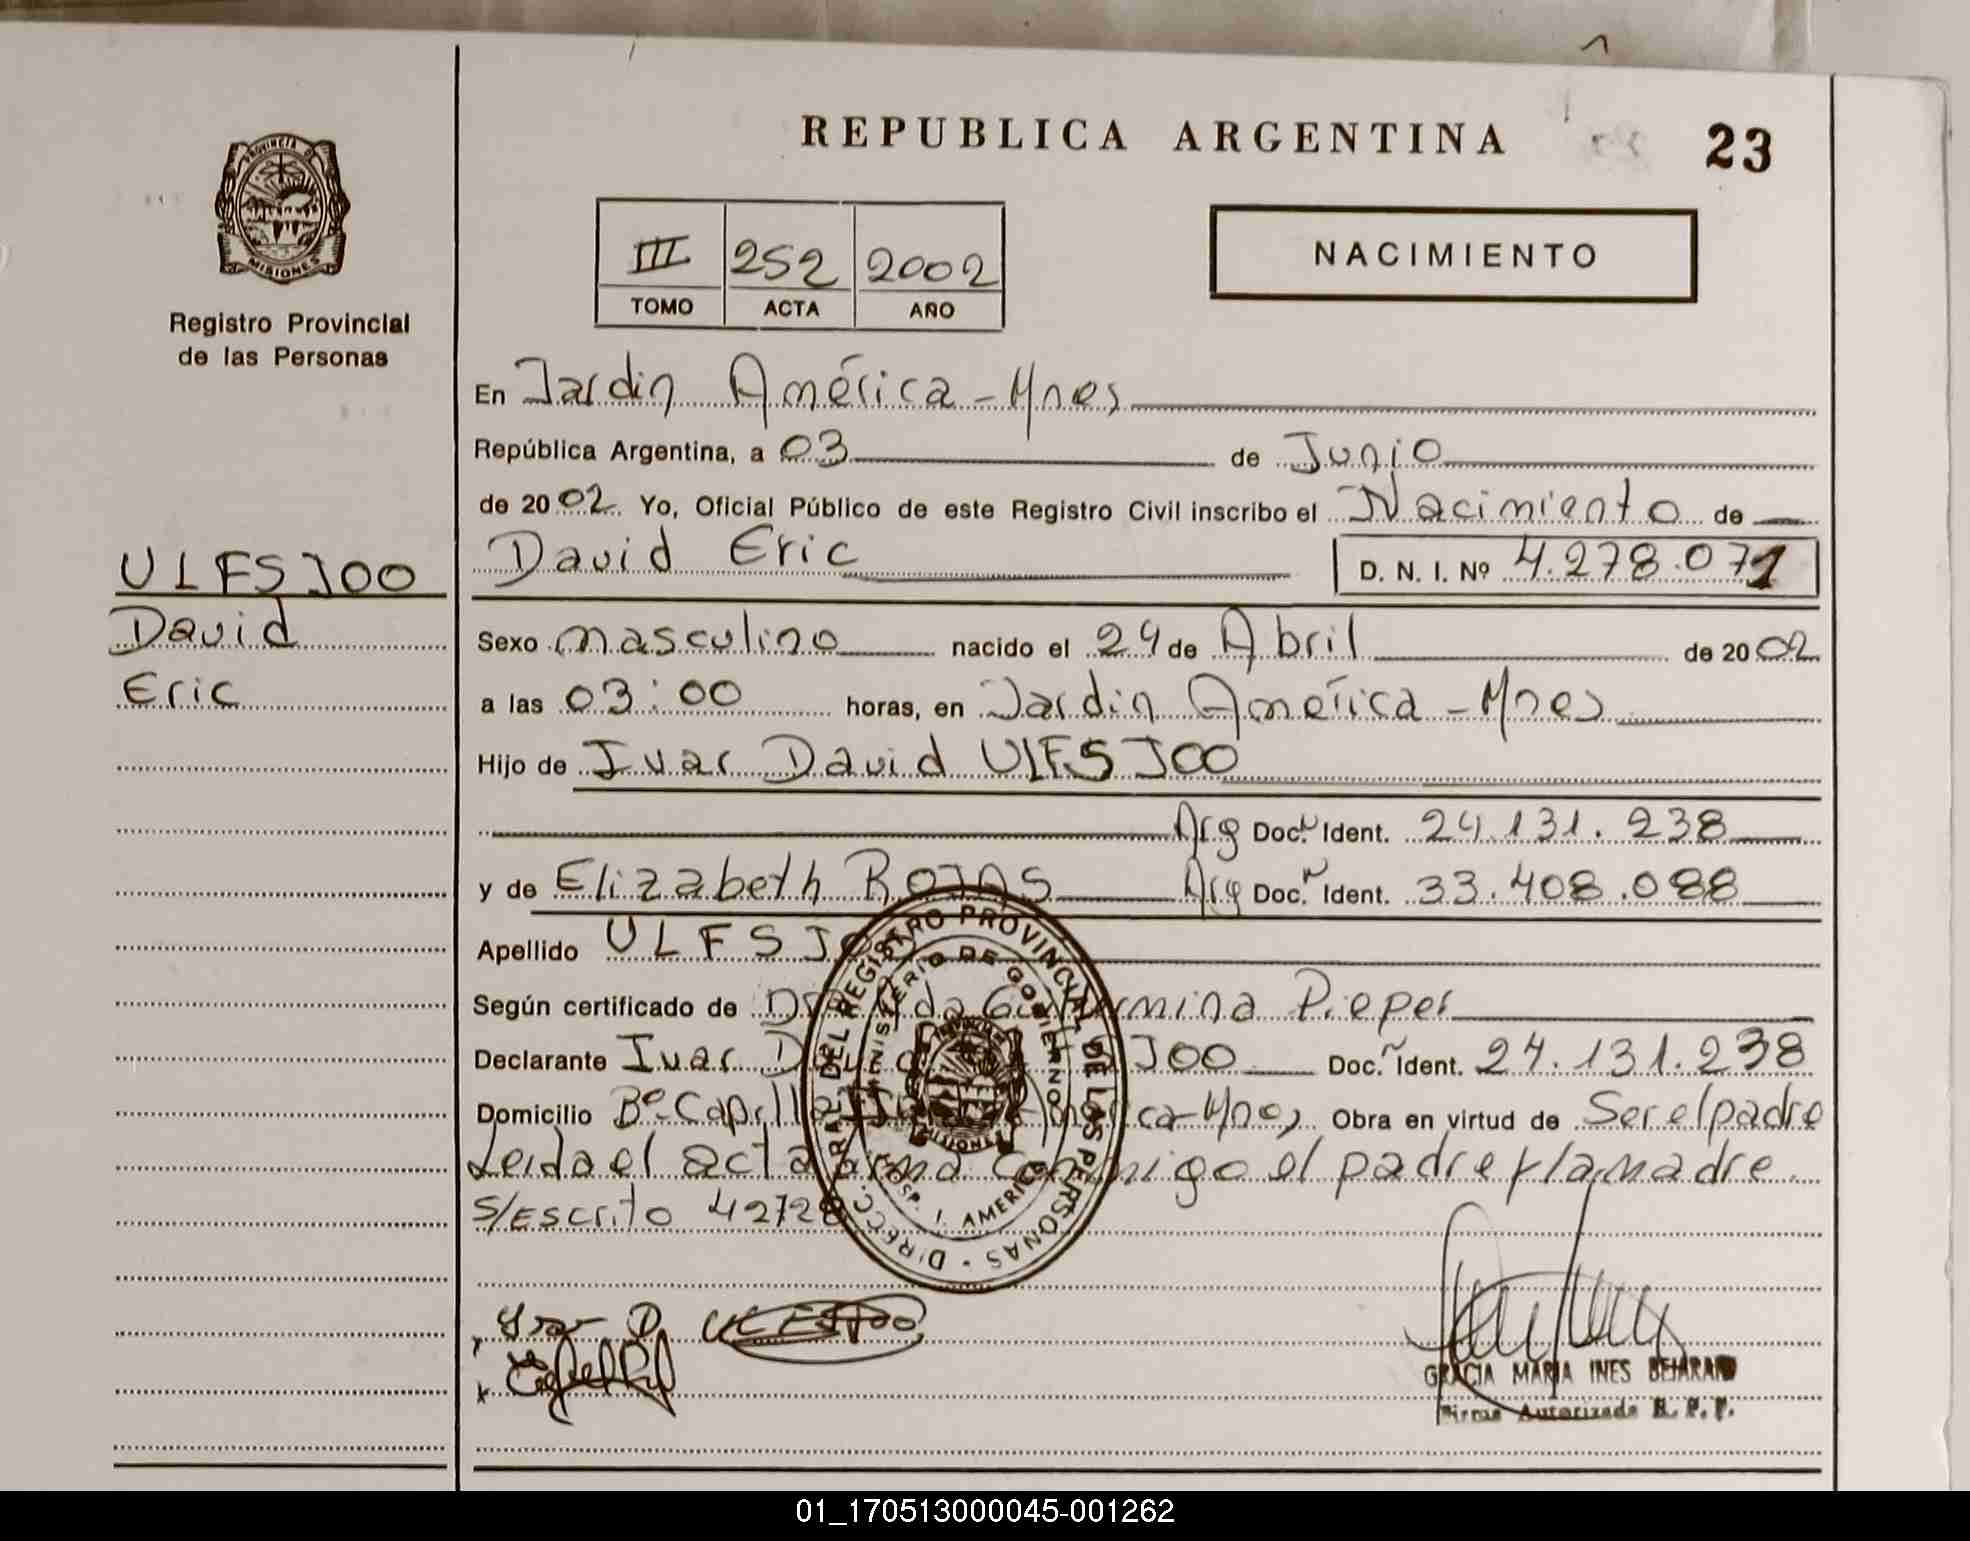 REPUBLICA ARGENTINA 23
PROVINCIA D
MISIONES
Registro Provincial
de las Personas
III 252 2002
TOMO ACTA AÑO
NACIMIENTO
En Jardin América - Mnes
República Argentina, a 03 de Junio
de 2002 Yo, Oficial Público de este Registro Civil inscribo el Nacimiento de
David Eric D. N. I. Nº 4.278.071
ULFSJOO
David
Eric
Sexo masculino nacido el 24 de Abril de 2002
a las 03:00 horas, en Jardin América - Mnes
Hijo de Ivar David ULFSJOO
Arg Doc. Ident. 24.131.238
y de Elizabeth ROJAS Arg Doc. Ident. 33.408.088
Apellido ULFSJO
Según certificado de Pieper
Declarante Ivar JOO Doc. Ident. 24.131.238
Domicilio Bº Capilla Mnes, Obra en virtud de Ser el padre
Leida el acta conmigo el padre y la madre.
S/Escrito 42728
DIRECC. GRAL DEL REGISTRO PROVINCIAL DE LAS PERSONAS
MINISTERIO DE GOBIERNO
HOSP. J. AMERICA
MISIONES
Ivar D. ULFSJOO
GRACIA MARIA INES BEJARANO
Firma Autorizada R. P. P.
01_170513000045-001262